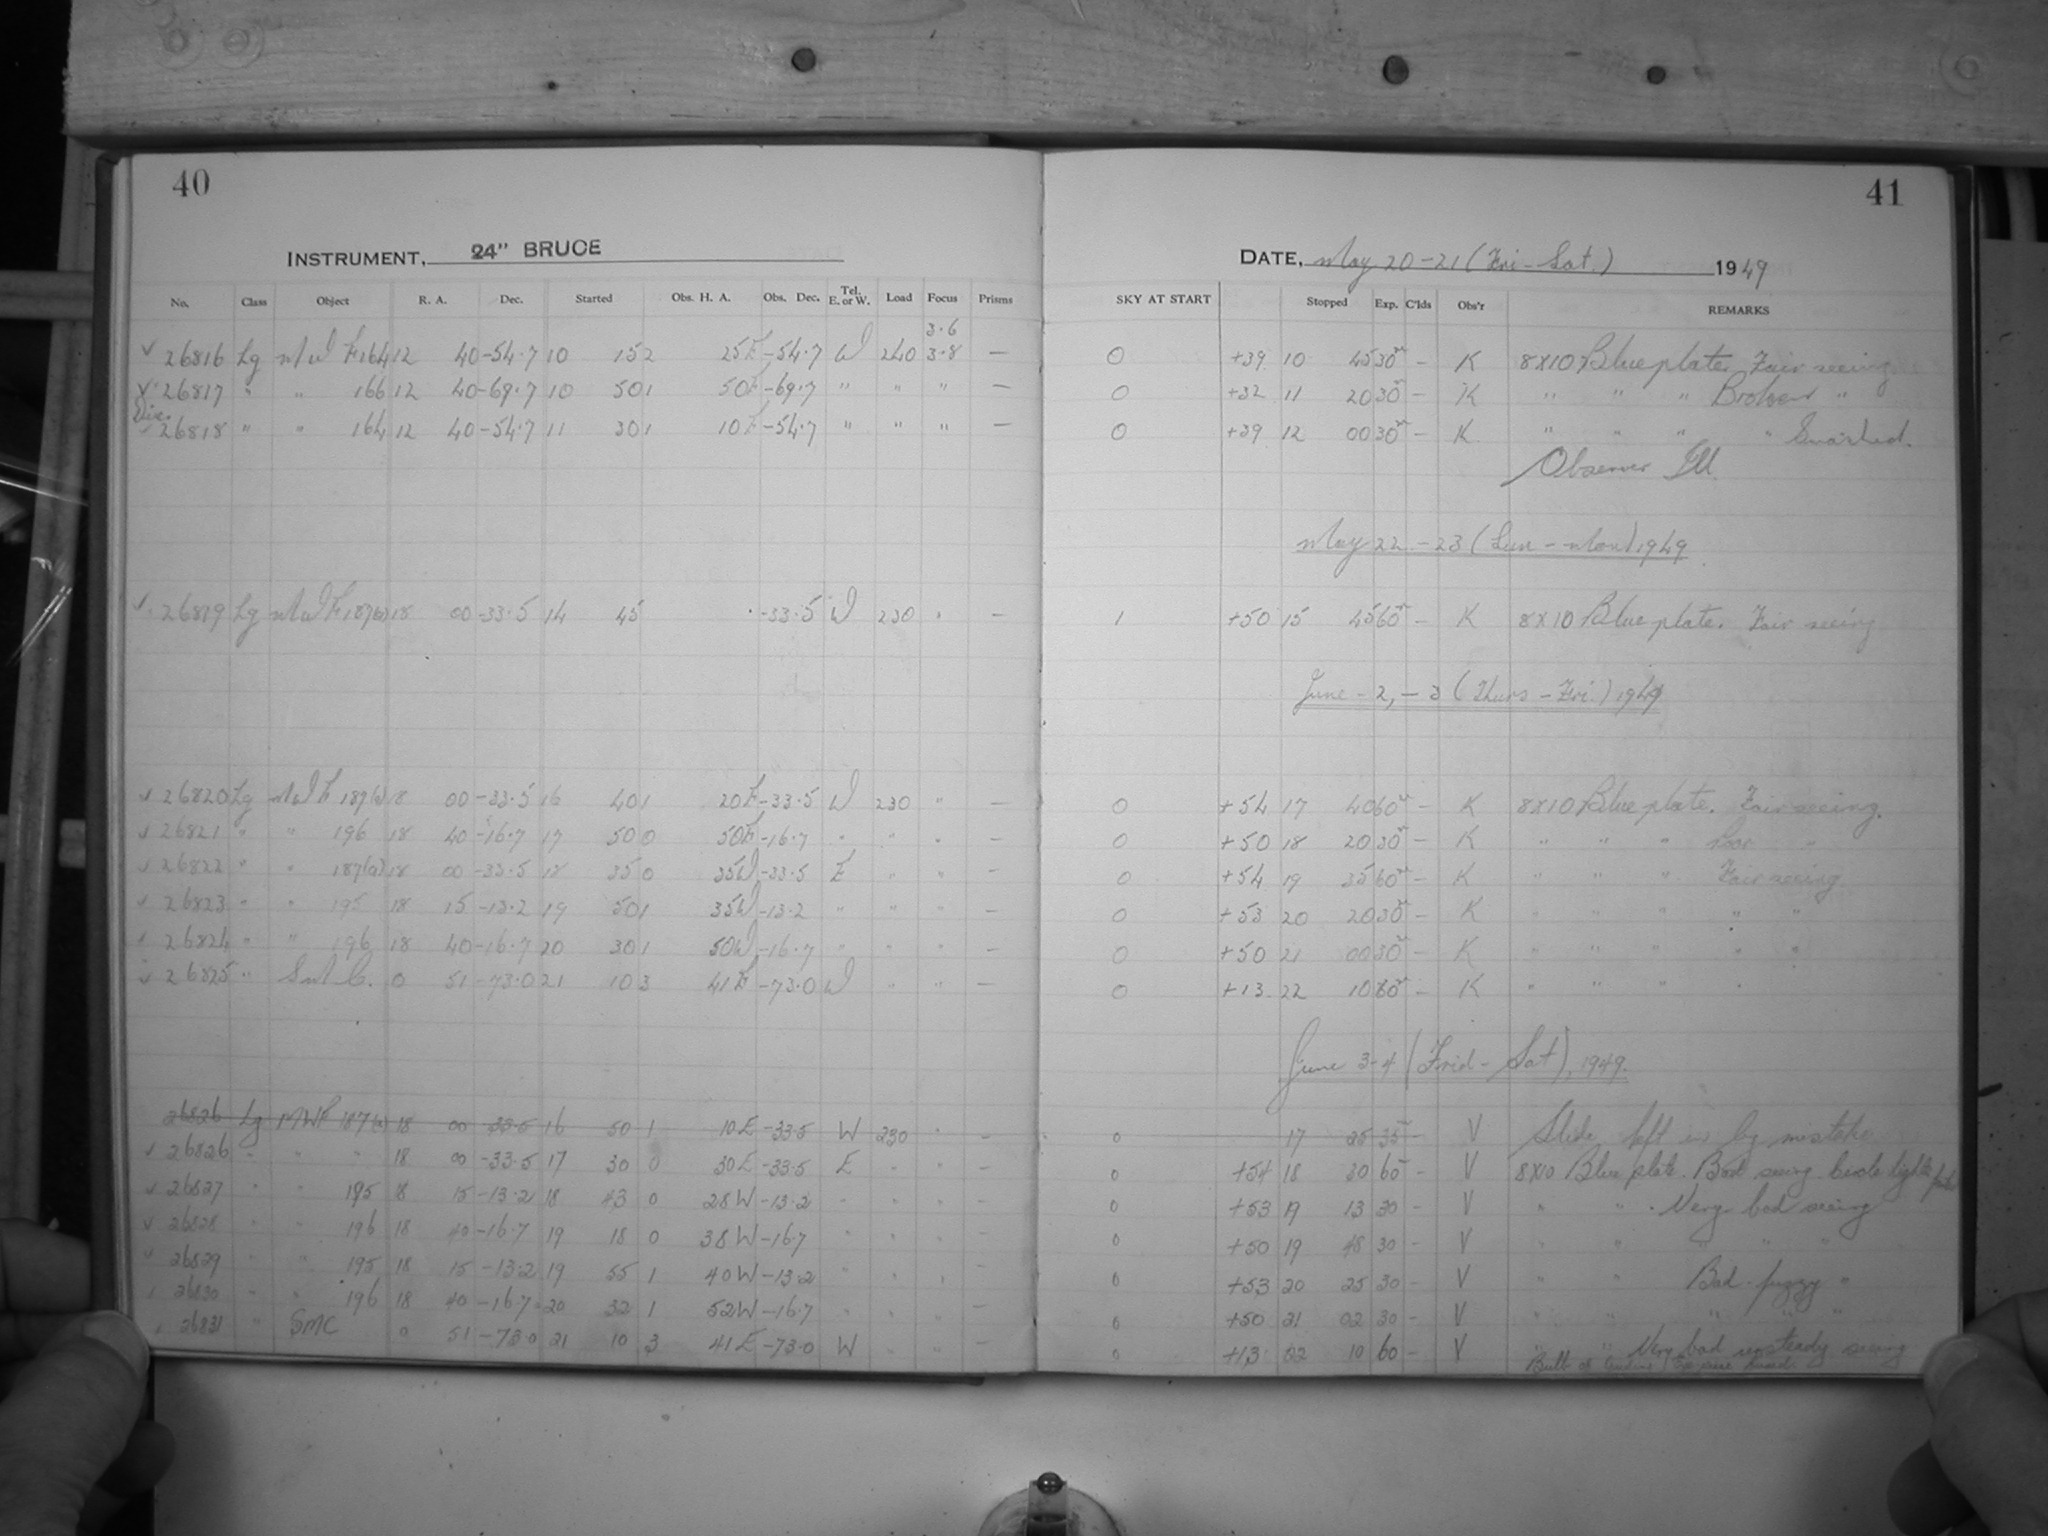 40
41
INSTRUMENT, 24" BRUCE
DATE, May 20-21 (Fri-Sat.) 1949
No. Class Object R. A. Dec. Started Obs. H. A. Obs. Dec. Tel. E. or W. Load Focus Prisms SKY AT START Stopped Exp. C'lds Obs'r REMARKS
3.6
√ 26816 Lg MWF 164 12 40 -54.7 10 15 2 25E -54.7 W 240 3.8 — 0 +39 10 45 30m - K 8x10 Blue plate. Fair seeing
26817 " " 166 12 40 -69.7 10 50 1 50E -69.7 " " " — 0 +32 11 20 30m - K " " " Broken "
26818 " " 164 12 40 -54.7 11 30 1 10E -54.7 " " " — 0 +39 12 00 30m - K " " " " Smashed.
Observer Ill
May 22 - 23 (Sun - Mon) 1949
√ 26819 Lg MWF 187(a) 18 00 -33.5 14 45 -33.5 W 230 " — 1 +50 15 45 60m - K 8x10 Blue plate. Fair seeing
June - 2, - 3 (Thurs - Fri.) 1949
√ 26820 Lg MWF 187(a) 18 00 -33.5 16 40 1 20E -33.5 W 230 " — 0 +54 17 40 60m - K 8x10 Blue plate. Fair seeing.
√ 26821 " " 196 18 40 -16.7 17 50 0 50E -16.7 " " " — 0 +50 18 20 30m - K " " " "
√ 26822 " " 187(a) 18 00 -33.5 18 35 0 35W -33.5 E " " — 0 +54 19 35 60m - K " " " Fair seeing
√ 26823 " " 195 18 15 -13.2 19 50 1 35W -13.2 " " " — 0 +53 20 20 30m - K " " " " "
√ 26824 " " 196 18 40 -16.7 20 30 1 50W -16.7 " " " — 0 +50 21 00 30m - K " " " " "
√ 26825 " SMC. 0 51 -73.0 21 10 3 41E -73.0 W " " — 0 +13 22 10 60m - K " " " "
June 3-4 (Frid - Sat), 1949.
26826 Lg MWF 187(a) 18 00 -33.5 16 50 1 10E -33.5 W 230 " - 0 17 25 35 - V Slide left in by mistake
√ 26826 " " " 18 00 -33.5 17 30 0 30E -33.5 E " " - 0 +54 18 30 60 - V 8x10 Blue plate. Bad seeing
√ 26827 " " 195 18 15 -13.2 18 43 0 28W -13.2 " " " - 0 +53 19 13 30 - V " " Very bad seeing
√ 26828 " " 196 18 40 -16.7 19 18 0 38W -16.7 " " " - 0 +50 19 48 30 - V " " " " "
√ 26829 " " 195 18 15 -13.2 19 55 1 40W -13.2 " " " - 0 +53 20 25 30 - V " " Bad fuzzy "
√ 26830 " " 196 18 40 -16.7 20 32 1 52W -16.7 " " " - 0 +50 21 02 30 - V " " " " "
√ 26831 " SMC 0 51 -73.0 21 10 3 41E -73.0 W " " - 0 +13 22 10 60 - V " " Very bad unsteady seeing